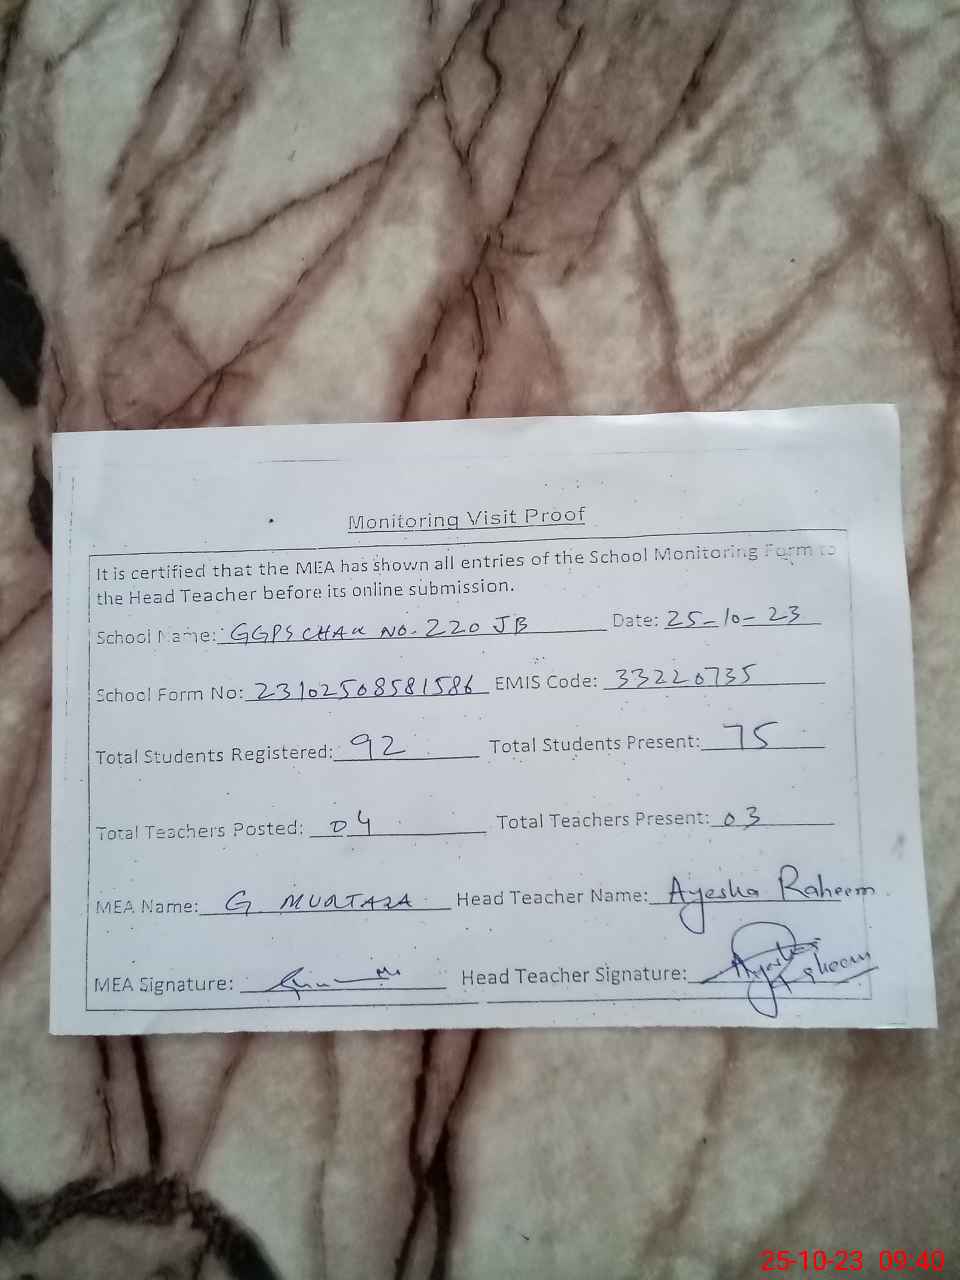 Monitoring Visit Proof
It is certified that the MEA has shown all entries of the School Monitoring Form to
the Head Teacher before its online submission.
School Name: GGPS CHAK NO. 220 JB Date: 25-10-23
School Form No: 23102508581586 EMIS Code: 33220735
Total Students Registered: 92 Total Students Present: 75
Total Teachers Posted: 04 Total Teachers Present: 03
MEA Name: G MURTAZA Head Teacher Name: Ayesha Raheem
MEA Signature: Head Teacher Signature: Ayesha Raheem
25-10-23 09:40